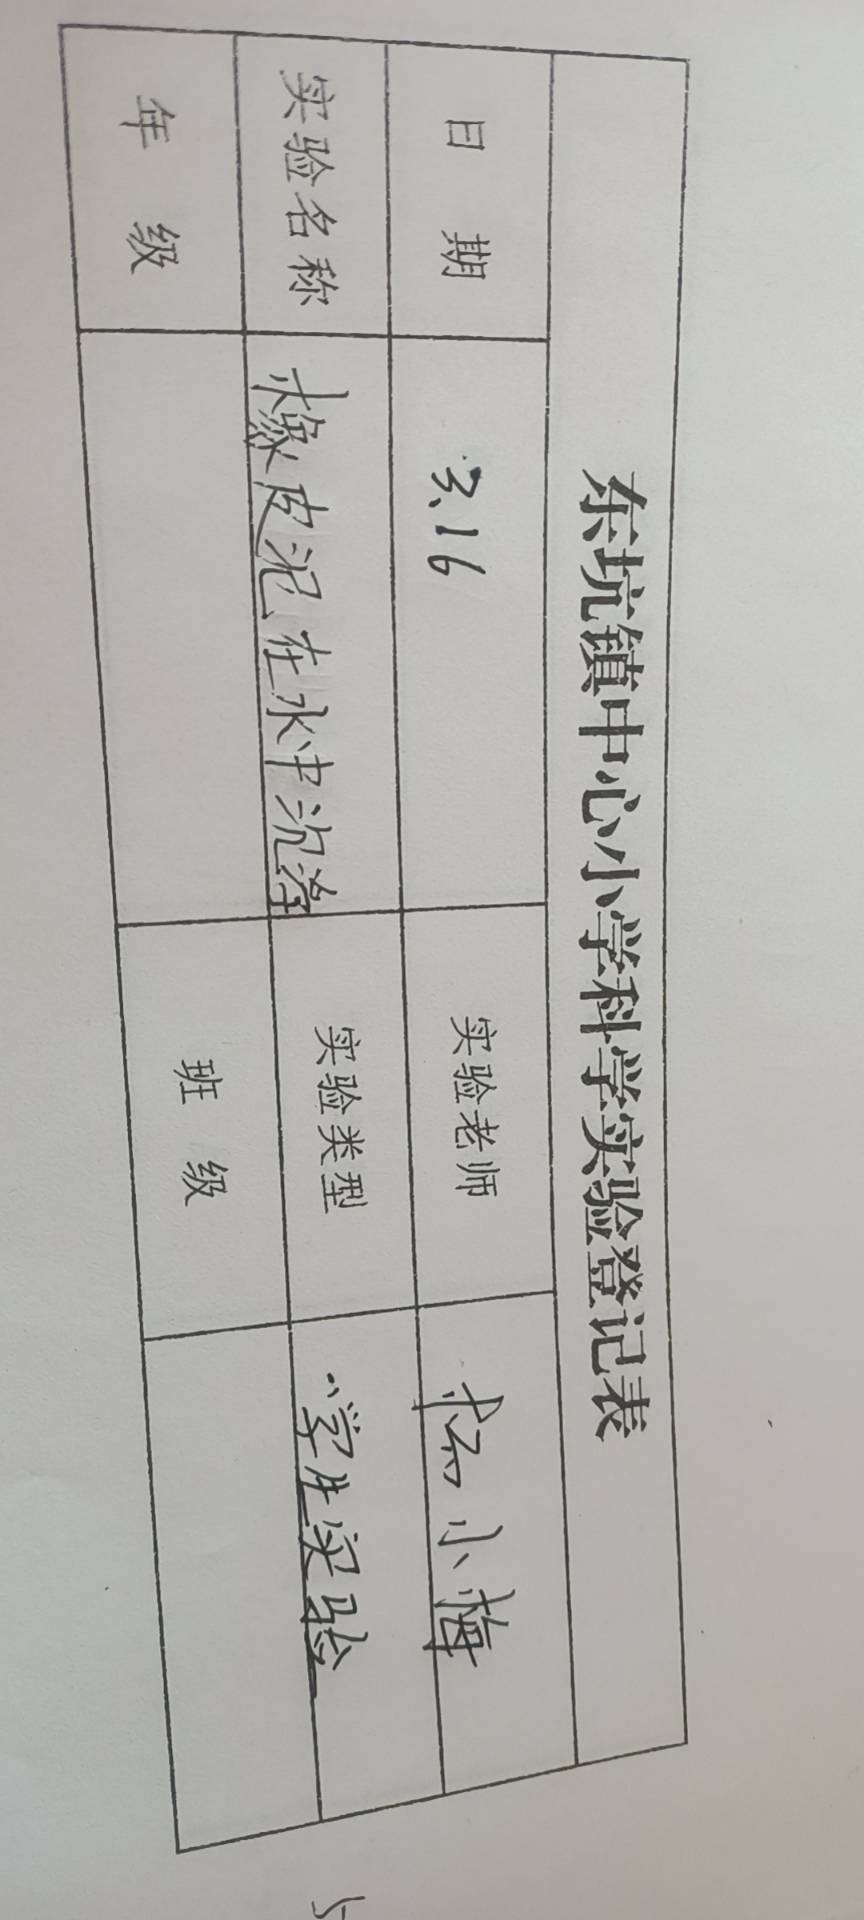 东坑镇中心小学科学实验登记表
日期 3.16 实验老师 小梅
实验名称 橡皮泥在水中沉浮 实验类型 学生实验
年级 班级